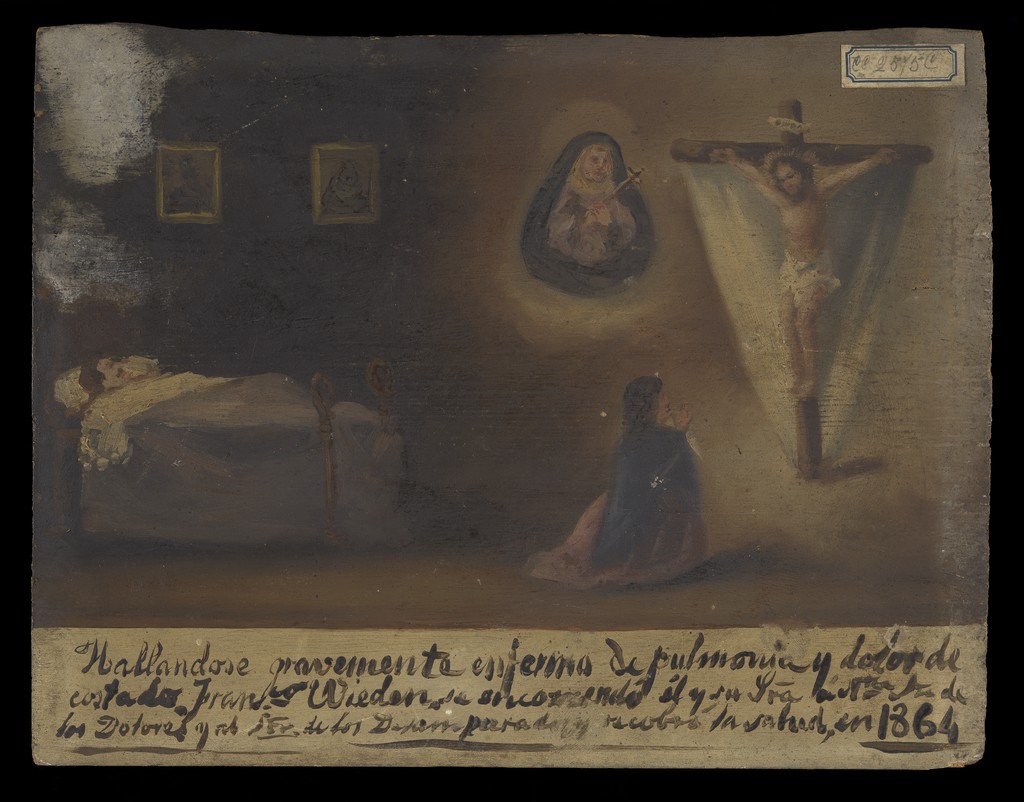 Hallandose gravemente enfermo de pulmonia y dolor de
costado, Franco Wieden, se encomendó él y su Sra á Ntra Sra de
los Dolores y al Sor. de los Desamparados y recobró la salud, en 1864